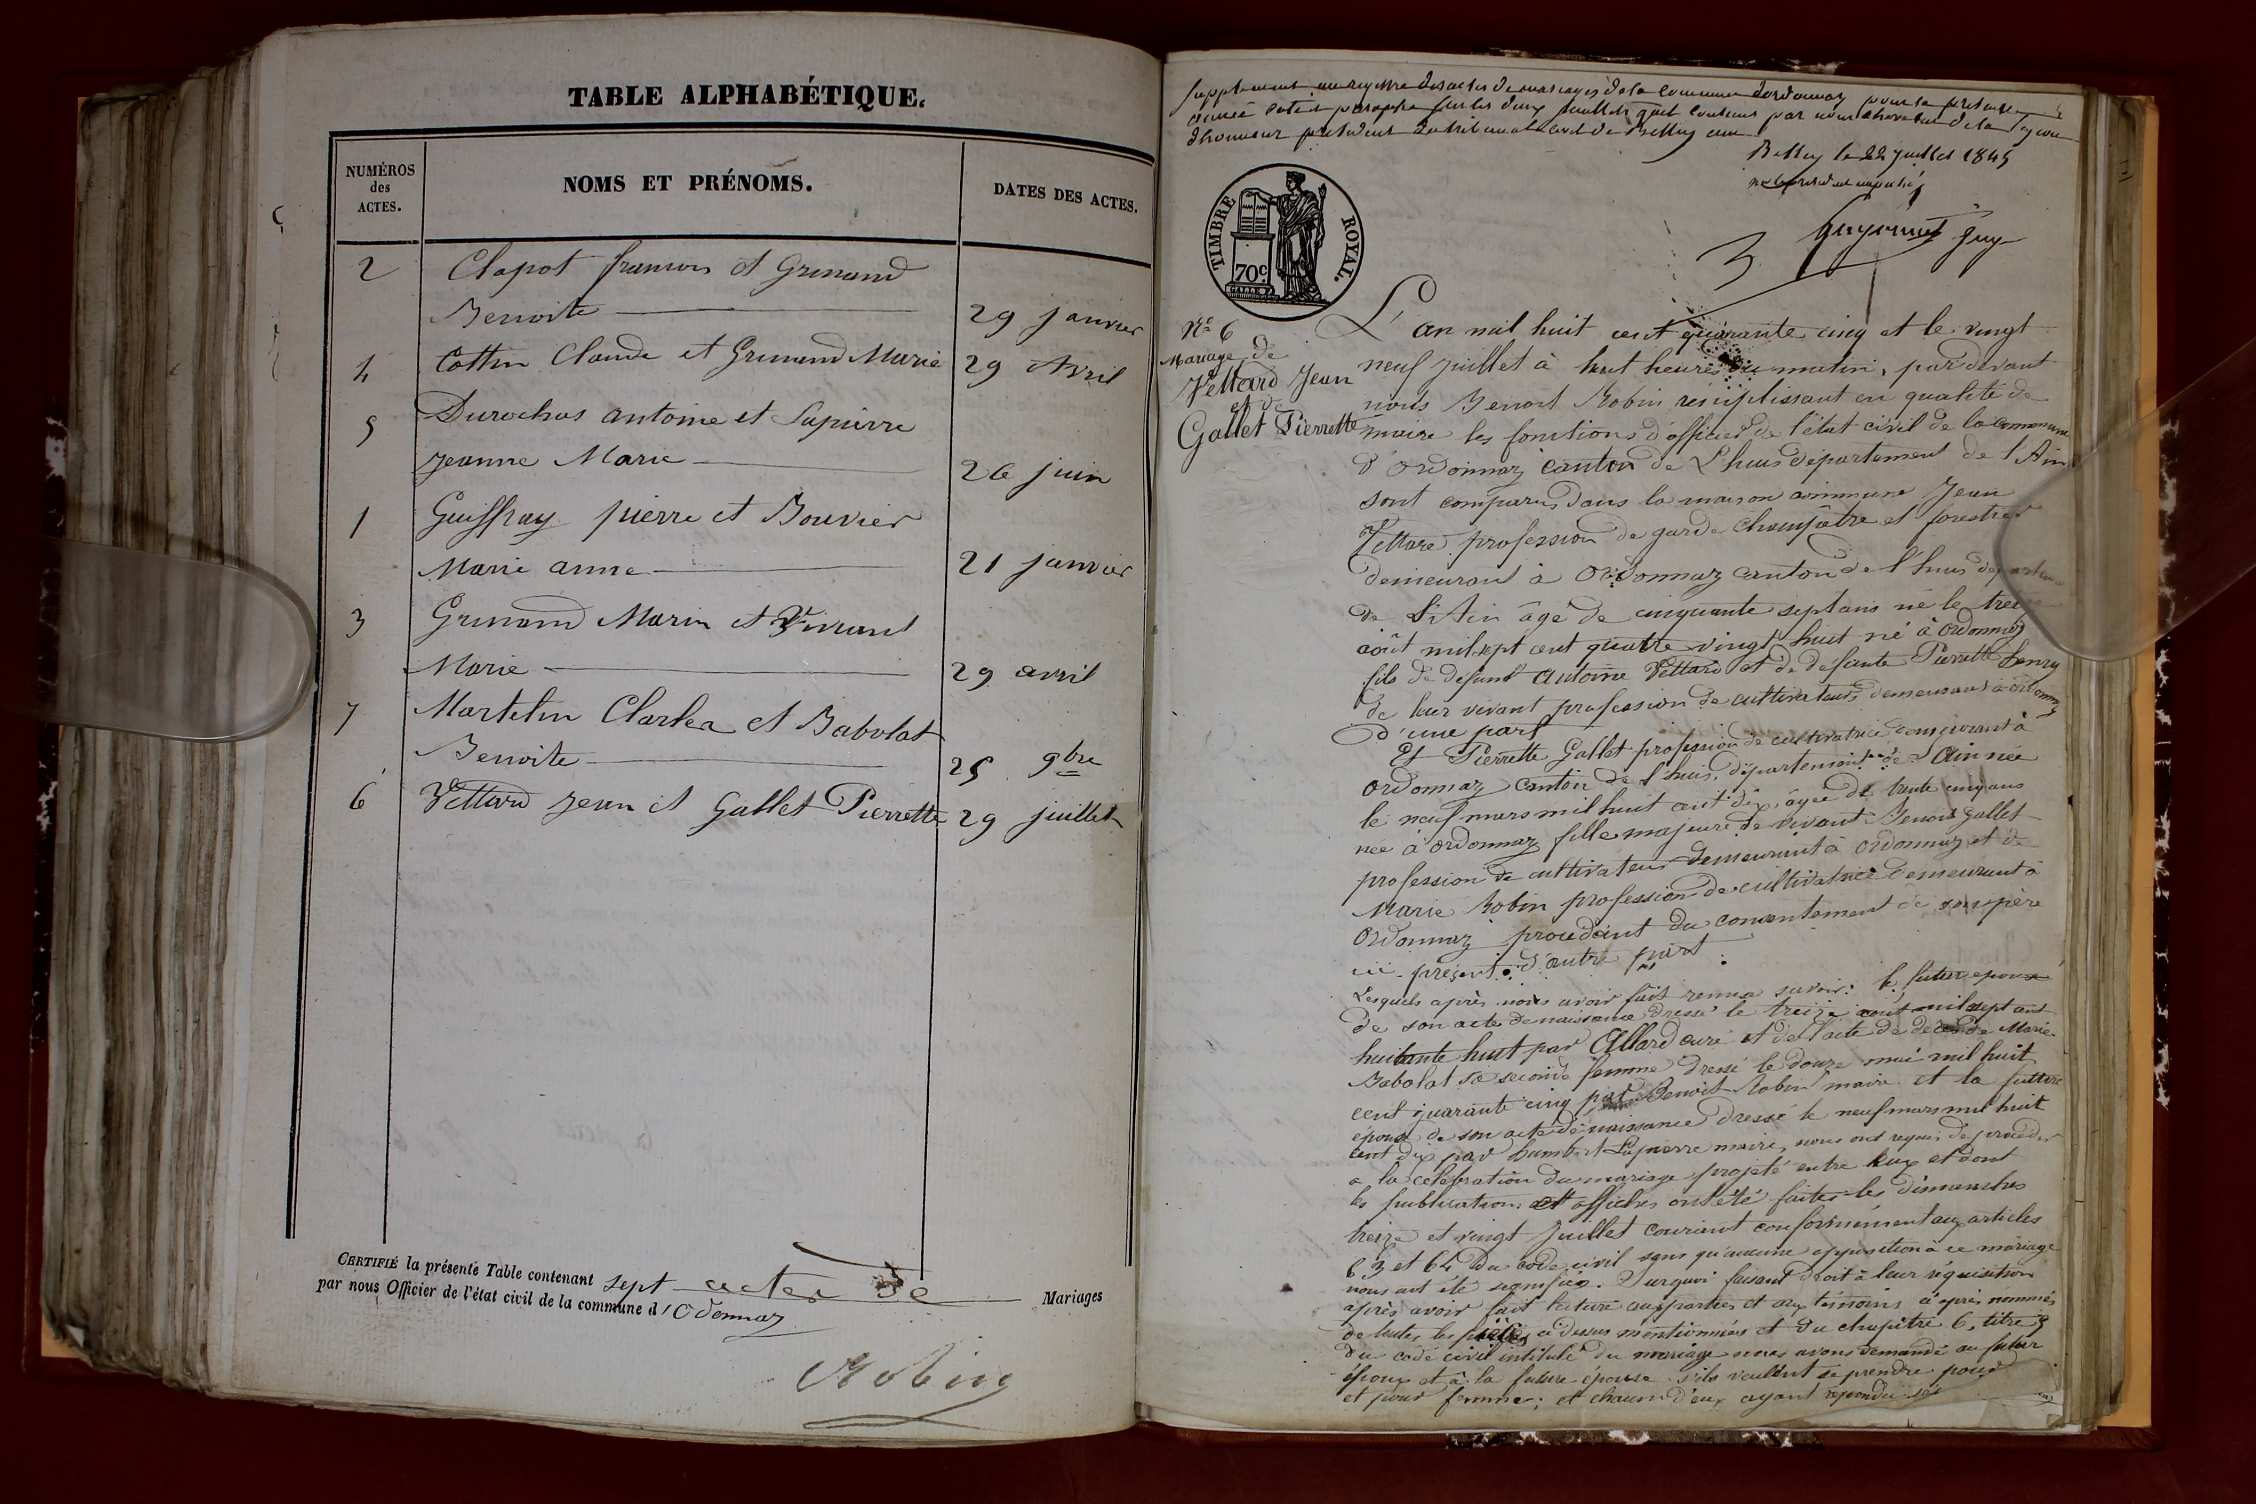 TABLE ALPHABÉTIQUE.
NUMÉROS
des
ACTES.
NOMS ET PRÉNOMS.
DATES DES ACTES.
2 Clapot francois et Grinand
Benoite 29 janvier
4 Cottin Claude et Grinand Marie 29 Avril
5 Durochas antoine et Lapierre
jeanne Marie 26 juin
1 Guiffray pierre et Bouvier
Marie anne 21 janvier
3 Grinand Marin et
Marie 29 avril
7 Martelin Charles et Babolat
Benoite 25 9bre
6 Vettard jean et Gallet Pierrette 29 juillet
CERTIFIÉ la présente Table contenant sept actes de Mariages
par nous Officier de l'état civil de la commune d'Odonnaz
Robin
Supplement au registre des actes de mariages de la commune dordonnaz pour la presente
année coté et paraphé sur les deux feuillets quil contient par nous chevalier de la legion
dhonneur president du tribunal civil de Belley
Belley le 22 juillet 1845
TIMBRE ROYAL.
70c
No 6
Mariage de
Vettard Jean
et de
Gallet Pierrette
L'an mil huit cent quarante cinq et le vingt
neuf juillet à huit heures du matin, par devant
nous Benoit Robin remplissant en qualité de
maire les fonctions d'officier de l'état civil de la commune
d'Ordonnaz canton de Lhuis département de l'Ain
sont comparus dans la maison commune Jean
Vettard profession de garde champêtre et forestier
demeurant à Ordonnaz canton de l'huis
de l'Ain âgé de cinquante sept ans né le treize
août mil sept cent quatre vingt huit né à Ordonnaz
fils de defunt Antoine Vettard et de defunte Pierrette
de leur vivant profession de cultivateurs demeurant à ordonnaz
d'une part
Et Pierrette Gallet profession de cultivatrice demeurant à
Ordonnaz canton de l'huis, département de l'Ain née
le neuf mars mil huit cent dix, âgée de trente cinq ans
née à Ordonnaz fille majeure de vivant Benoit Gallet
profession de cultivateur demeurant à Ordonnaz et de
Marie Robin profession de cultivatrice demeurant à
Ordonnaz procedant du consentement de son père
ici présent d'autre part
Lesquels après nous avoir fait remise savoir: le futur epoux
de son acte de naissance dressé le treize août mil sept cent
huitante huit par Allard curé et de l'acte de deces de Marie
Babolat sa seconde femme dressé le douze mai mil huit
cent quarante cinq par Benoit Robin maire et la future
épouse de son acte de naissance dressé le neuf mars mil huit
cent dix par humbert Lapierre maire, nous ont requis de proceder
a la celebration du mariage projeté entre eux et dont
les publications et affiches ont été faites les dimanches
treize et vingt Juillet courant conformément aux articles
63 et 64 du code civil sans qu'aucune opposition à ce mariage
nous ait été signifiée. Surquoi faisant droit à leur réquisition
après avoir fait lecture aux parties et aux témoins ci après nommés
de toutes les pièces ci dessus mentionnées et du chapitre 6, titre 5
du code civil intitulé du mariage nous avons demandé au futur
époux et à la future épouse s'ils veulent se prendre pour
et pour femme; et chacun d'eux ayant repondu